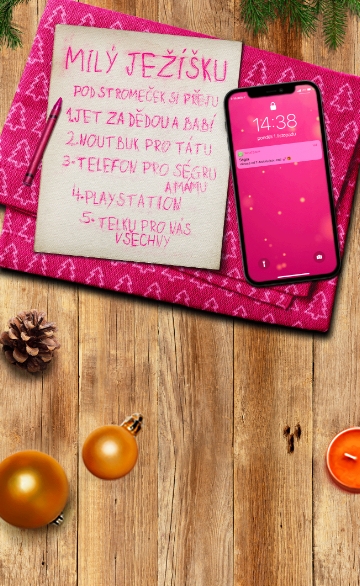 MILÝ JEŽÍŠKU
POD STROMEČEK SI PŘEJU
1. JET ZA DĚDOU A BABÍ
2. NOUTBUK PRO TÁTU
3. TELEFON PRO SÉGRU
A MÁMU
4. PLAYSTATION
5. TELKU PRO NÁS
VŠECHNY
14:38